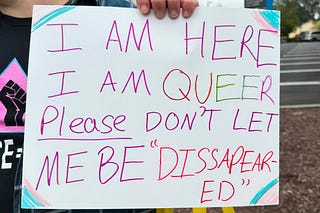 I AM HERE
I AM QUEER
Please DON'T LET
ME BE "DISSAPEAR-
ED"